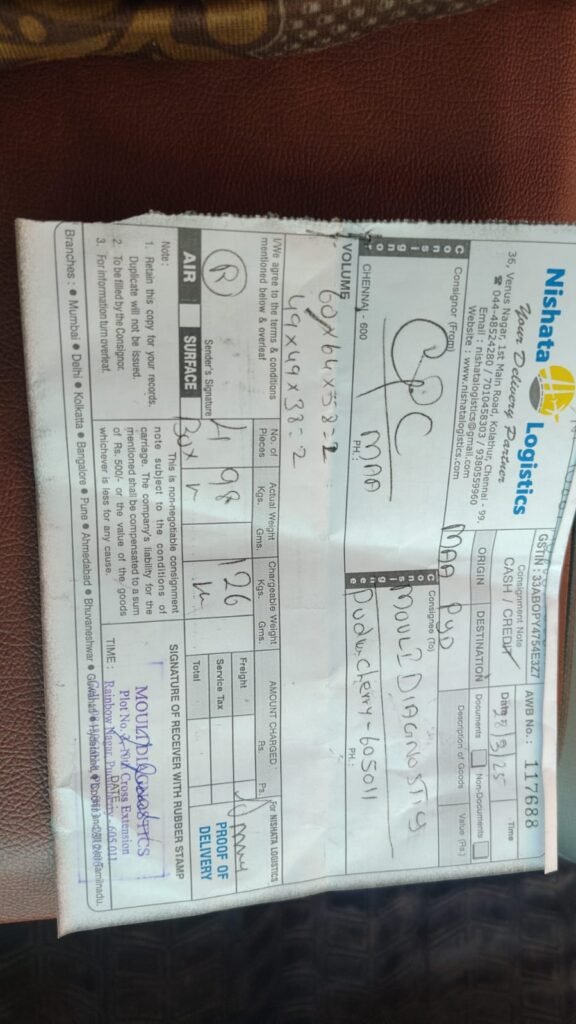 Nishata Logistics
Your Delivery Partner
36, Venus Nagar, 1st Main Road, Kolathur, Chennai - 99.
☎ 044-48524280 / 7010458303 / 9380559960
Email : nishatalogistics@gmail.com
Website : www.nishatalogistics.com
GSTIN : 33ABOPY4754E3Z7
Consignment Note
CASH / CREDIT
AWB No. : 117688
Date
28/3/25
Time
ORIGIN
DESTINATION
MAA
PYD
Documents
Non-Documents
Description of Goods
Value (Rs.)
Consignor
Consignor (From)
CPC
MAA
CHENNAI - 600
PH.:
Consignee
Consignee (To)
MOULI DIAGNOSTIS
Puducherry - 605011
PH.:
VOLUME
60x64x58-2
49x49x38-2
I/We agree to the terms & conditions
mentioned below & overleaf
Sender's Signature
No. of
Pieces
4
Box
Actual Weight
Kgs. Gms.
98
Chargeable Weight
Kgs. Gms.
126
AMOUNT CHARGED :
Rs. Ps.
Freight
Service Tax
Total
For NISHATA LOGISTICS
PROOF OF
DELIVERY
R
AIR
SURFACE
Note :
1. Retain this copy for your records.
Duplicate will not be issued.
2. To be filled by the Consignor.
3. For information turn overleaf.
This is non-negotiable consignment
note subject to the conditions of
carriage. The company's liability for the
mentioned shall be compensated to a sum
of Rs. 500/- or the value of the goods
whichever is less for any cause.
SIGNATURE OF RECEIVER WITH RUBBER STAMP
MOULI DIAGNOSTICS
Cross Extension
Rainbow Nagar, Puducherry - 605 011
TIME :
DATE :
Branches : ● Mumbai ● Delhi ● Kolkatta ● Bangalore ● Pune ● Ahmedabad ● Bhuvaneshwar ●